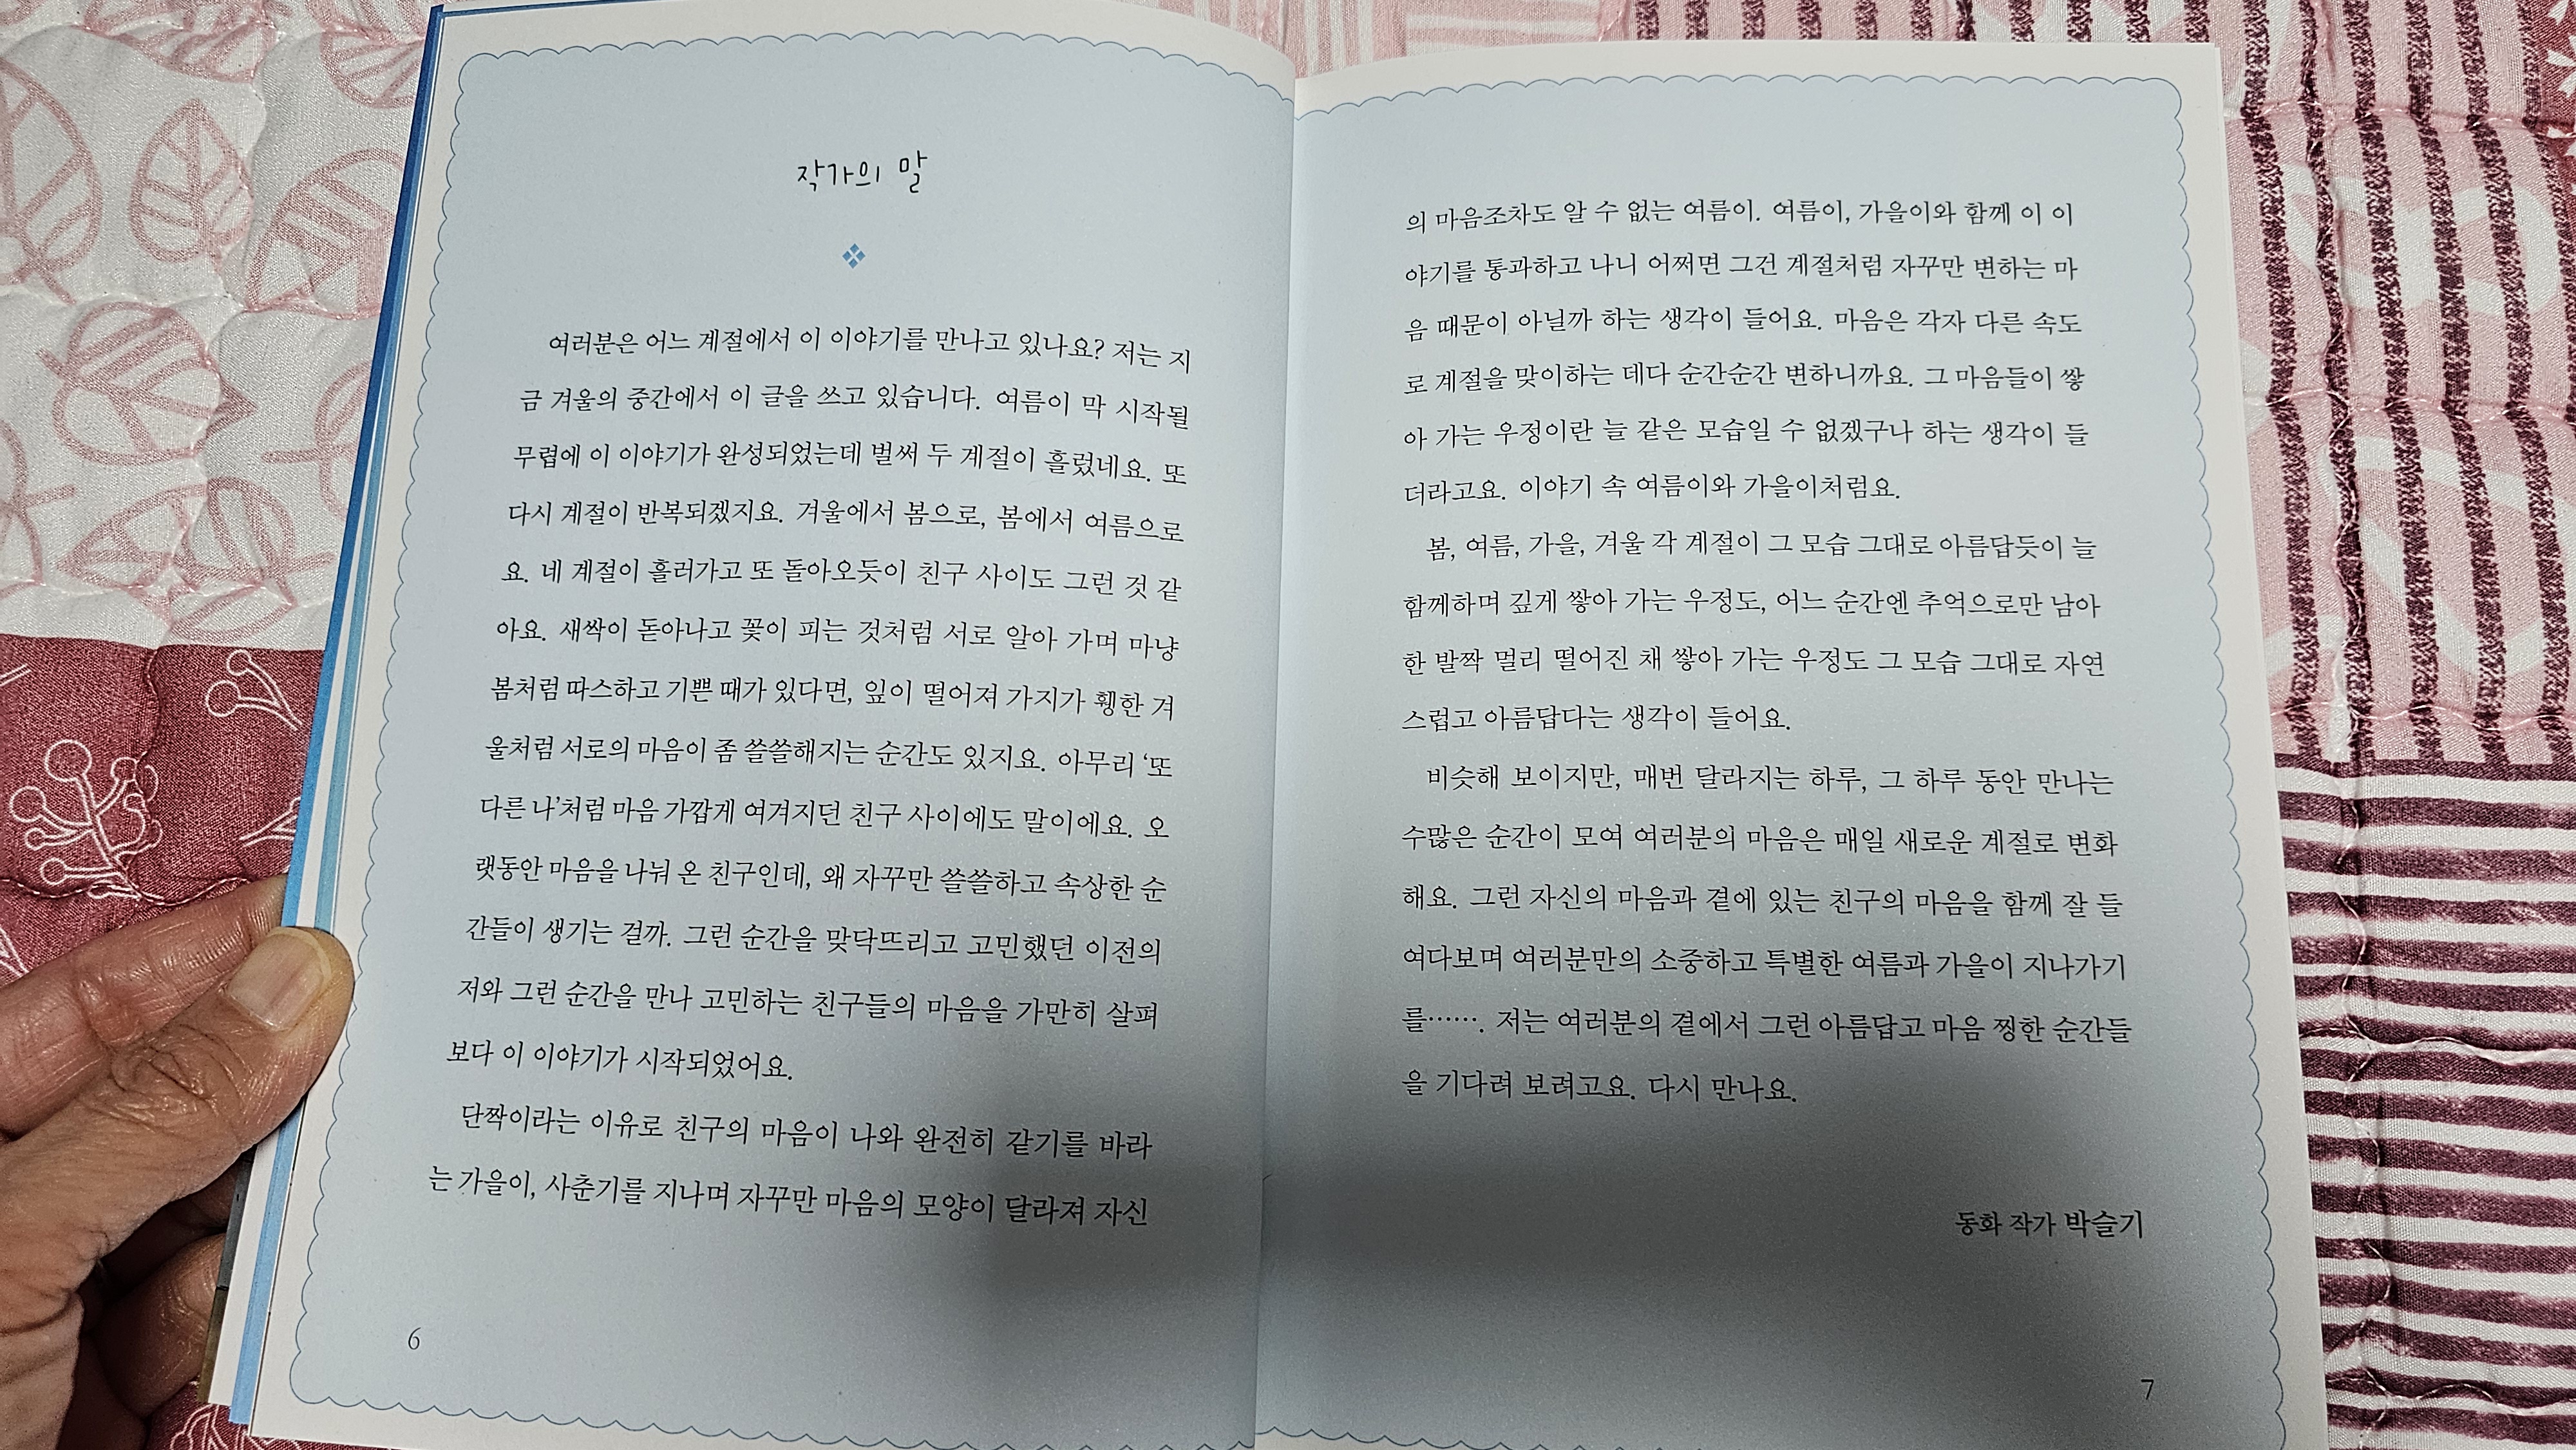 작가의 말
여러분은 어느 계절에서 이 이야기를 만나고 있나요? 저는 지
금 겨울의 중간에서 이 글을 쓰고 있습니다. 여름이 막 시작될
무렵에 이 이야기가 완성되었는데 벌써 두 계절이 흘렀네요. 또
다시 계절이 반복되겠지요. 겨울에서 봄으로, 봄에서 여름으로
요. 네 계절이 흘러가고 또 돌아오듯이 친구 사이도 그런 것 같
아요. 새싹이 돋아나고 꽃이 피는 것처럼 서로 알아 가며 마냥
봄처럼 따스하고 기쁜 때가 있다면, 잎이 떨어져 가지가 휑한 겨
울처럼 서로의 마음이 좀 쓸쓸해지는 순간도 있지요. 아무리 ‘또
다른 나’처럼 마음 가깝게 여겨지던 친구 사이에도 말이에요. 오
랫동안 마음을 나눠 온 친구인데, 왜 자꾸만 쓸쓸하고 속상한 순
간들이 생기는 걸까. 그런 순간을 맞닥뜨리고 고민했던 이전의
저와 그런 순간을 만나 고민하는 친구들의 마음을 가만히 살펴
보다 이 이야기가 시작되었어요.
단짝이라는 이유로 친구의 마음이 나와 완전히 같기를 바라
는 가을이, 사춘기를 지나며 자꾸만 마음의 모양이 달라져 자신
6
의 마음조차도 알 수 없는 여름이. 여름이, 가을이와 함께 이 이
야기를 통과하고 나니 어쩌면 그건 계절처럼 자꾸만 변하는 마
음 때문이 아닐까 하는 생각이 들어요. 마음은 각자 다른 속도
로 계절을 맞이하는 데다 순간순간 변하니까요. 그 마음들이 쌓
아 가는 우정이란 늘 같은 모습일 수 없겠구나 하는 생각이 들
더라고요. 이야기 속 여름이와 가을이처럼요.
봄, 여름, 가을, 겨울 각 계절이 그 모습 그대로 아름답듯이 늘
함께하며 깊게 쌓아 가는 우정도, 어느 순간엔 추억으로만 남아
한 발짝 멀리 떨어진 채 쌓아 가는 우정도 그 모습 그대로 자연
스럽고 아름답다는 생각이 들어요.
비슷해 보이지만, 매번 달라지는 하루, 그 하루 동안 만나는
수많은 순간이 모여 여러분의 마음은 매일 새로운 계절로 변화
해요. 그런 자신의 마음과 곁에 있는 친구의 마음을 함께 잘 들
여다보며 여러분만의 소중하고 특별한 여름과 가을이 지나가기
를……. 저는 여러분의 곁에서 그런 아름답고 마음 찡한 순간들
을 기다려 보려고요. 다시 만나요.
동화 작가 박슬기
7